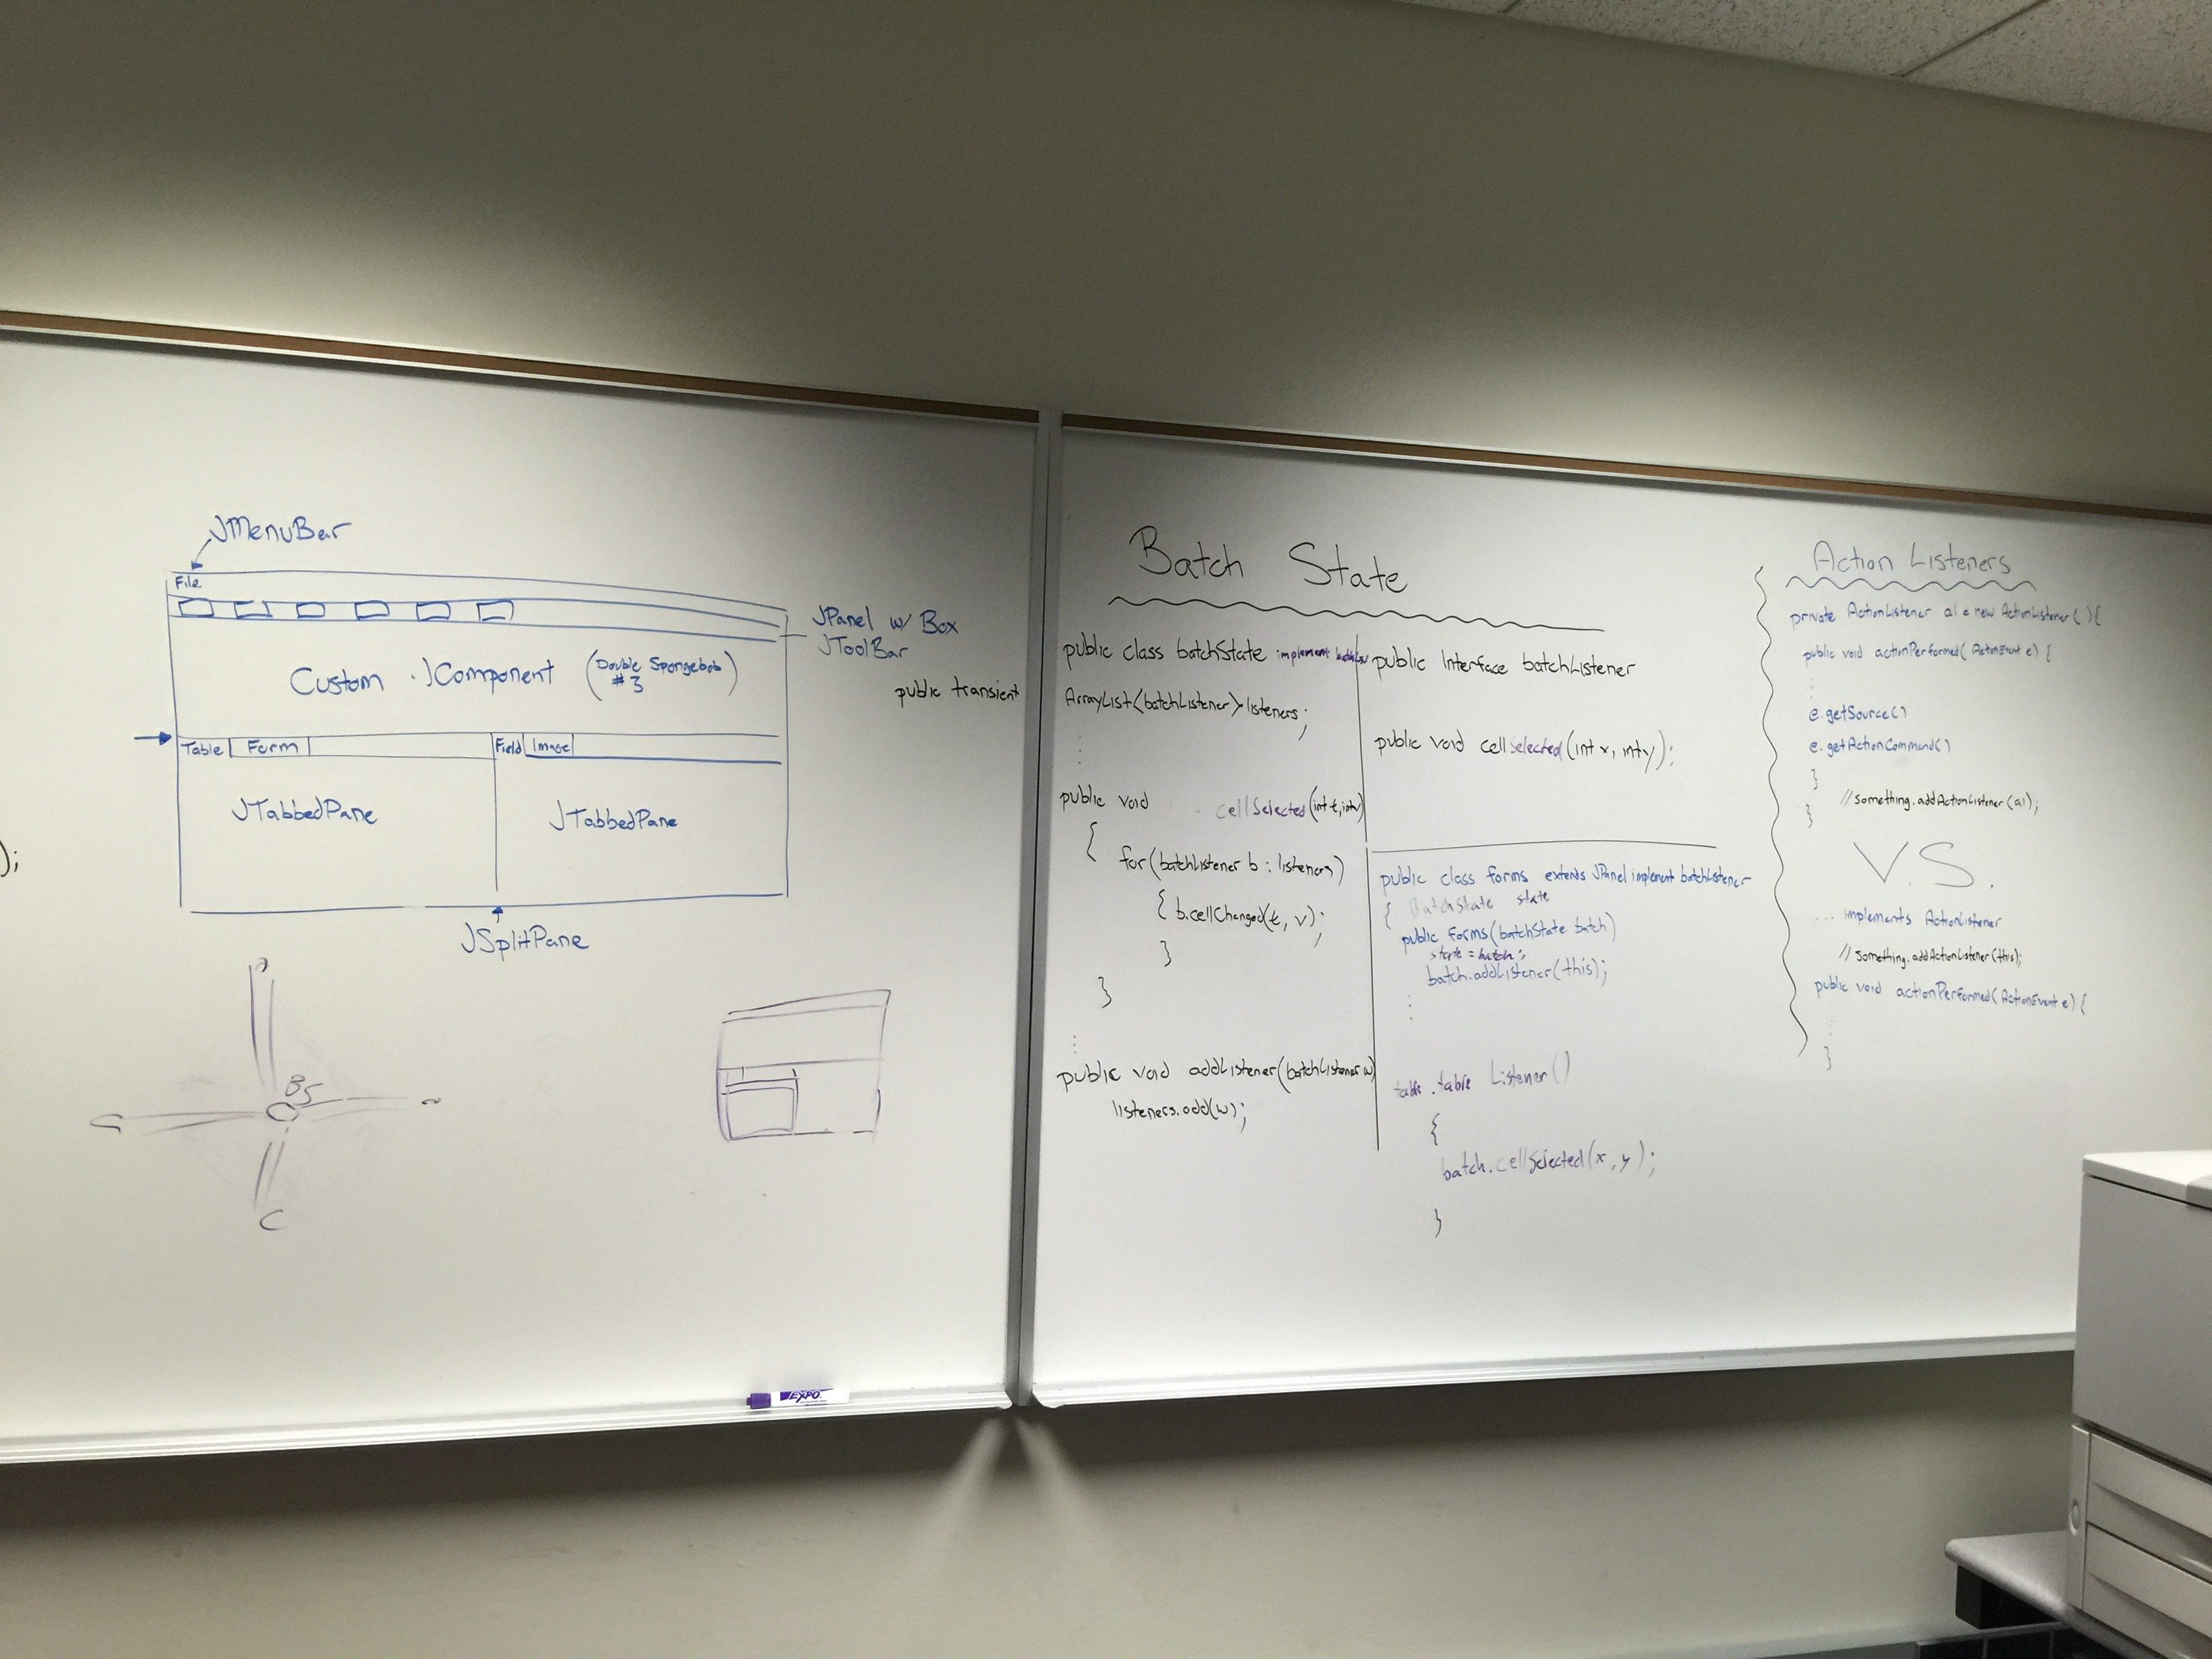 JMenuBar
File
JPanel w/ Box
JToolBar
Custom JComponent (Double Spongebob #3)
public transient
Table Form Field Image
JTabbedPane JTabbedPane
);
JSplitPane
BS
C
EXPO
Batch State
public class batchState implement
ArrayList<batchListener> listeners;
public void cellSelected(int t, int v)
{
for(batchListener b : listeners)
{ b.cellChanged(t, v);
}
}
public void addListener(batchListener w)
listeners.add(w);
public Interface batchListener
public void cellSelected(int x, int y);
public class forms extends JPanel implement batchListener
{ BatchState state
public Forms(batchState batch)
state = batch;
batch.addListener(this);
table.table Listener()
{
batch.cellSelected(x, y);
}
Action Listeners
private ActionListener al = new ActionListener(){
public void actionPerformed(ActionEvent e) {
e.getSource()
e.getActionCommand()
}
// something.addActionListener(al);
}
V.S.
... implements ActionListener
// Something.addActionListener(this);
public void actionPerformed(ActionEvent e) {
}